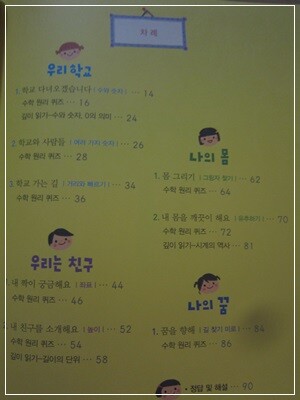 차례
우리 학교
1. 학교 다녀오겠습니다 (수와 숫자) ··· 14
수학 원리 퀴즈 ··· 16
깊이 읽기-수와 숫자, 0의 의미 ··· 24
2. 학교와 사람들 (여러 가지 숫자) ··· 26
수학 원리 퀴즈 ··· 28
3. 학교 가는 길 (거리와 빠르기) ··· 34
수학 원리 퀴즈 ··· 36
우리는 친구
1. 내 짝이 궁금해요 (좌표) ··· 44
수학 원리 퀴즈 ··· 46
2. 내 친구를 소개해요 (놀이) ··· 52
수학 원리 퀴즈 ··· 54
깊이 읽기-길이의 단위 ··· 58
나의 몸
1. 몸 그리기 (그림자 찾기) ··· 62
수학 원리 퀴즈 ··· 64
2. 내 몸을 깨끗이 해요 ··· 70
수학 원리 퀴즈 ··· 72
깊이 읽기-시계의 역사 ··· 81
나의 꿈
1. 꿈을 향해 (길 찾기 미로) ··· 84
수학 원리 퀴즈 ··· 86
정답 및 해설 ··· 90